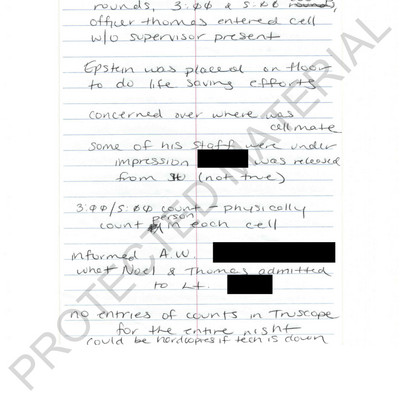 rounds, 3:00 & 5:00 round,
officer thomas entered cell
w/o supervisor present
Epstein was placed on floor
to do life saving efforts
concerned over where was
cellmate
some of his staff were under
impression was released
from (not true)
3:00/5:00 count - physically
person
count in each cell
informed A.W.
what Noel & Thomas admitted
to Lt.
no entries of counts in Truscope
for the entire night
could be hardcopies if tech is down
PROTECTED MATERIAL